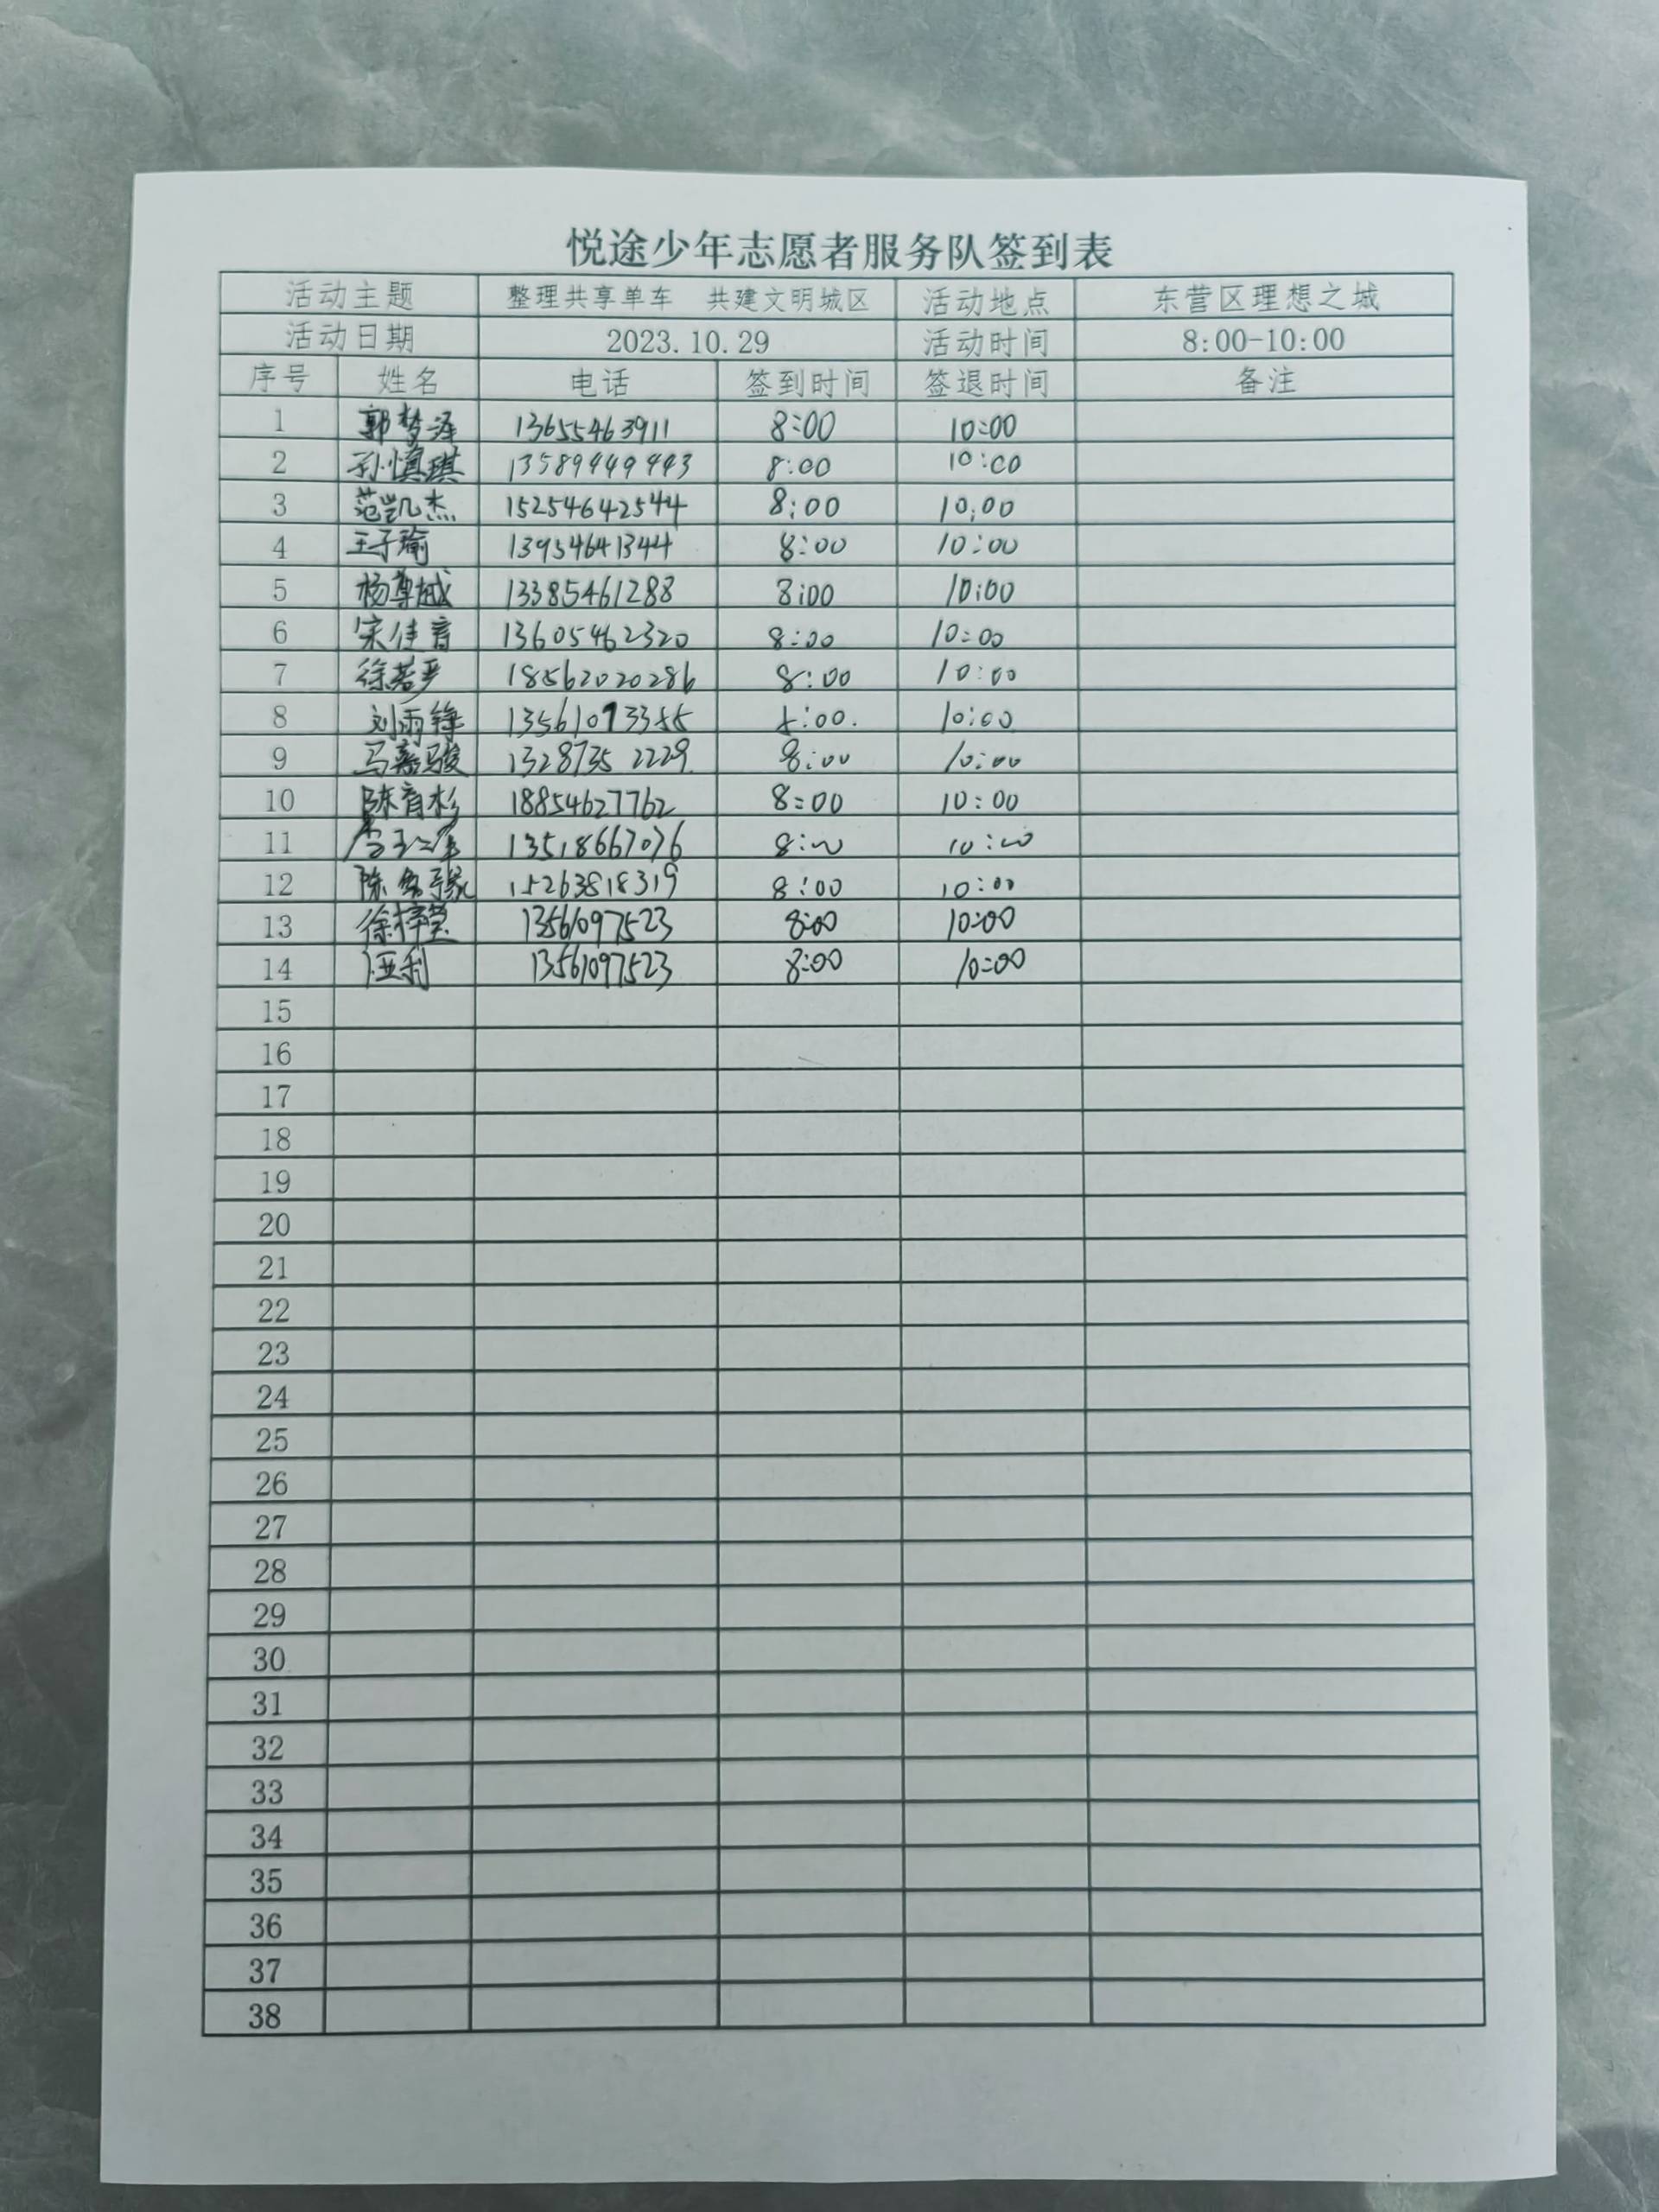 悦途少年志愿者服务队签到表
活动主题 整理共享单车 共建文明城区 活动地点 东营区理想之城
活动日期 2023.10.29 活动时间 8:00-10:00
序号 姓名 电话 签到时间 签退时间 备注
1 郭梦泽 13655463911 8:00 10:00
2 孙慎琪 13589449443 8:00 10:00
3 范凯杰 15254642544 8:00 10:00
4 王子瑜 13954641344 8:00 10:00
5 杨尊城 13385461288 8:00 10:00
6 宋佳音 13605462320 8:00 10:00
7 18562020286 8:00 10:00
8 刘雨铮 8:00. 10:00
9 马嘉骏 13287352229 8:00 10:00
10 陈育杉 18854627762 8:00 10:00
11 13518667076 8:00 10:00
12 15263818319 8:00 10:00
13 徐梓莹 13561097523 8:00 10:00
14 13561097523 8:00 10:00
15
16
17
18
19
20
21
22
23
24
25
26
27
28
29
30
31
32
33
34
35
36
37
38